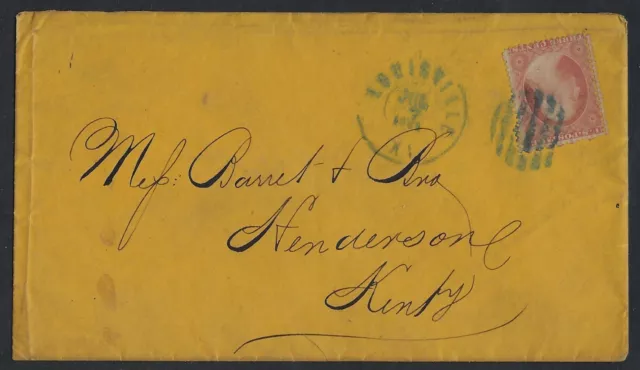 LOUISVILLE KY
Mess: Barret & Bro
Henderson
Kenty